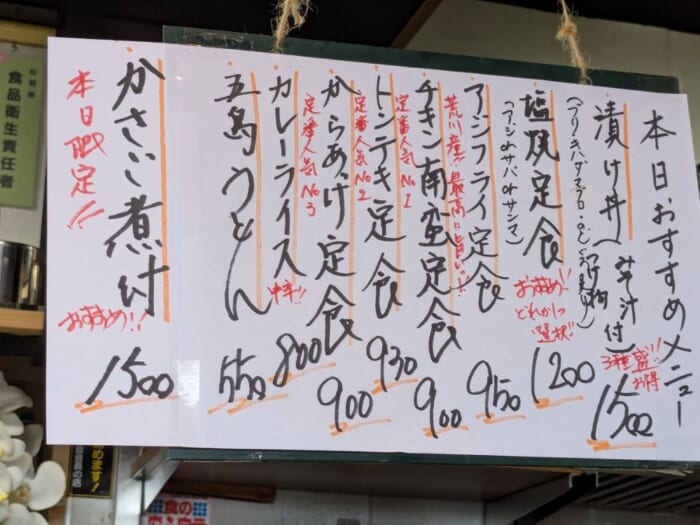 本日おすすめメニュー
漬け丼(みそ汁付
つけ物)
3種盛!!
お得
1500
塩焼定食
(アジ or サバ or サンマ)
お薦め!!
どれか1つ
"選択"
1200
アジフライ定食
950
荒川産!! 最高に旨いの!!
チキン南蛮定食
900
定番人気 No1
トンテキ定食
930
定番人気 No2
からあげ定食
900
定番人気 No3
カレーライス
中辛!!
800
五島うどん
550
かさご煮付
本日限定!!
お薦め!!
1500
食品衛生責任者
めます!
食の